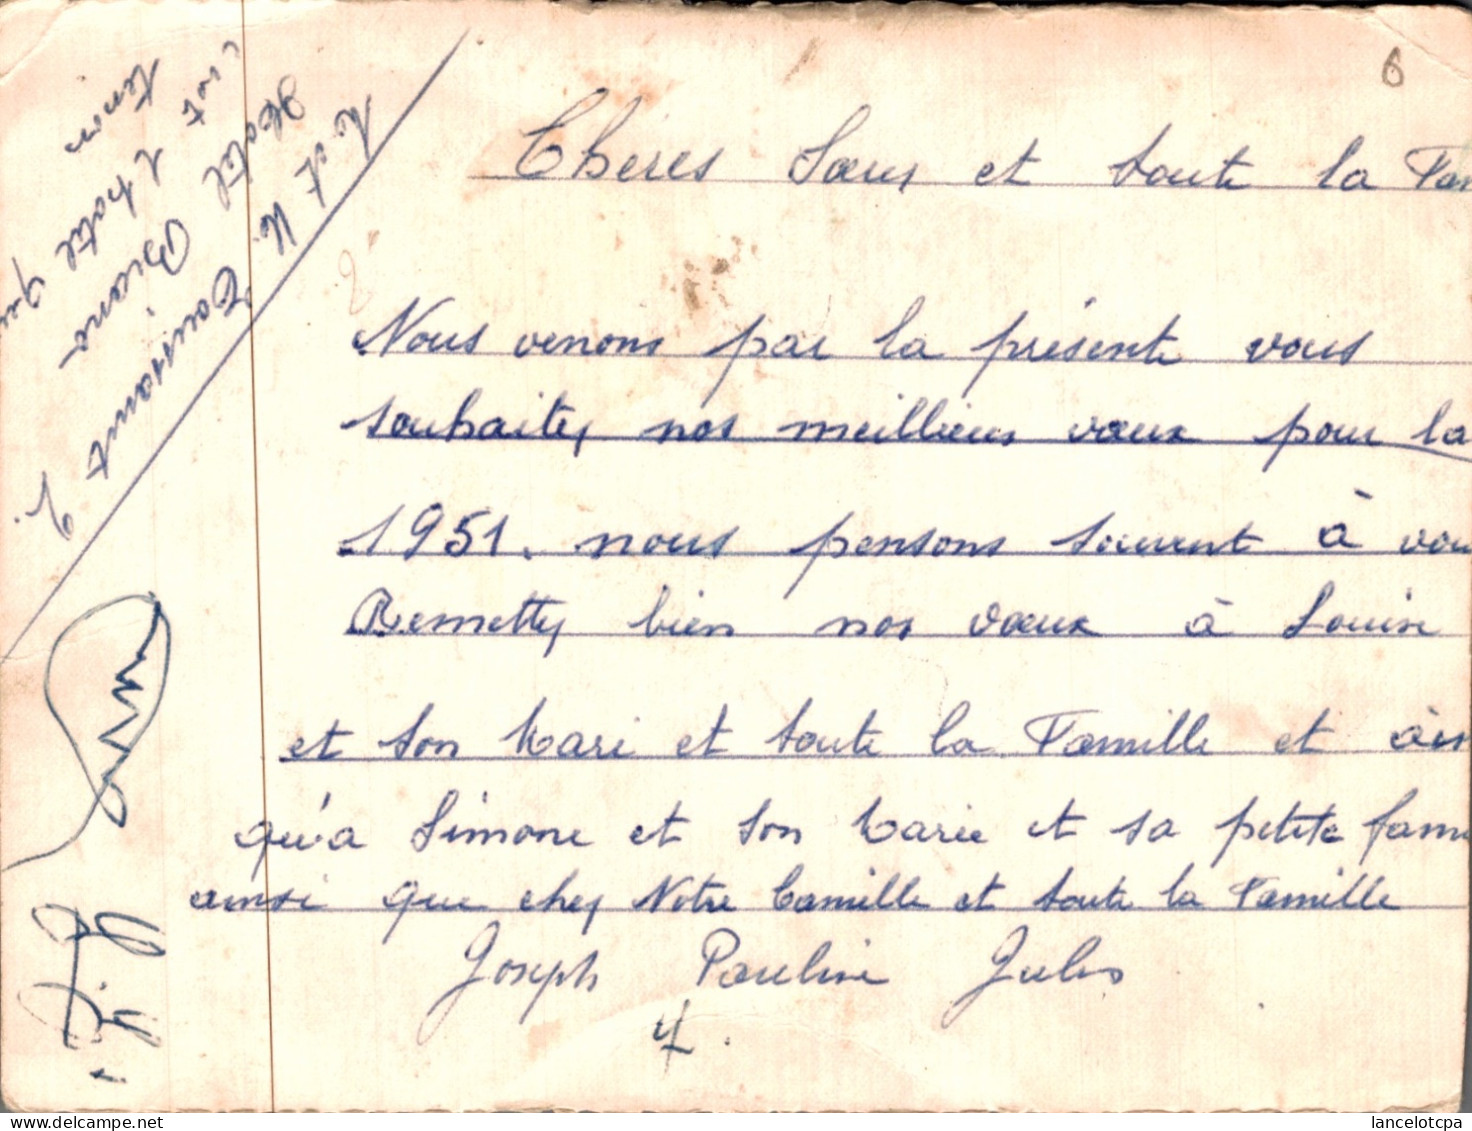 6
Chères Sœurs et toute la Fam
Nous venons par la présente vous
souhaitez nos meillieurs vœux pour la
1951. nous pensons souvent à vou
Remettez bien nos vœux à Louise
et son Mari et toute la Famille et ain
qu'a Simone et son Marie et sa petite fami
ainsi que chez Notre Camille et toute la Famille
Joseph Pauline Jules
M. et M. Toussaint J.
Hotel Piano
c'est l'hotel que
tenon
lancelotcpa